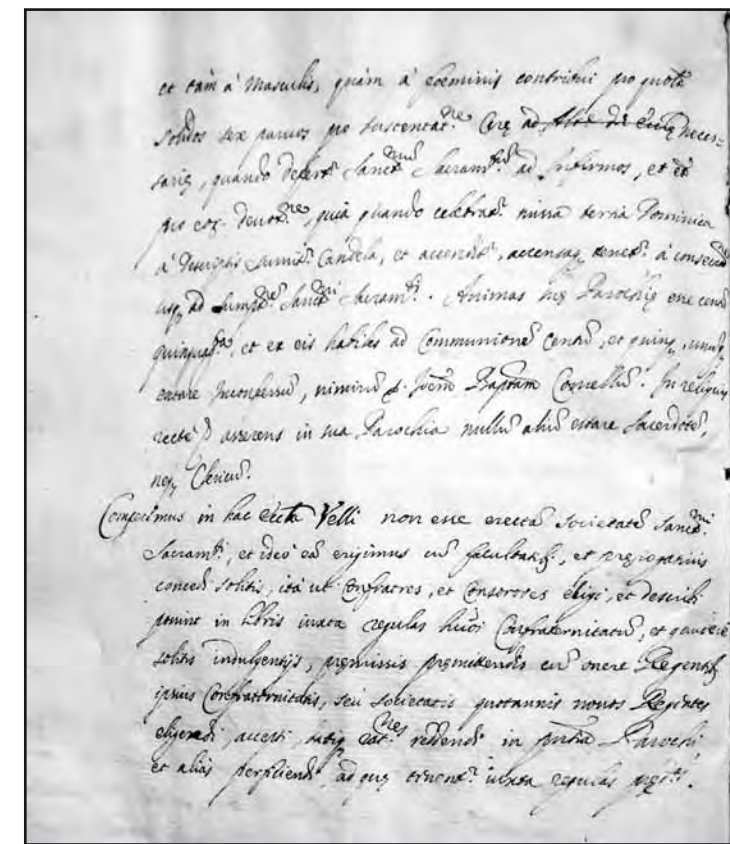 et tàm à Masculis, quàm à Foeminis contribui pro quota
solidos sex parvos pro sustentat.ne Cerę ad neces=
sarię, quando defert.r Sanct.mũ Sacram.tũ ad Infirmos, et
pro devot.ne, quia quando celebrat.r missa tertia Dominica
à Descriptis sumit.r Candela, et accendit.r, accensaq; tenet.r à
usq; ad Sumpt.nẽ Sanct.mi Sacram.ti. Animas huj. Parochię esse centũ
quinquag.ta, et ex eis habiles ad Communionẽ Centũ, et quinq;, unũq;
extare Inconfessũ, nimirũ D. Joem Baptam. In reliquis
rectè asserens in sua Parochia nullũ aliũ extare Sacerdotẽ,
neq; Clericũ.
Comperimus in hac Eccta Velli non esse erectã Societatẽ Sanct.mi
Sacram.ti, et ideò eã erigimus cũ facultatib., et pręrogativis
concedi solitis, ità ut Confratres, et Consorores eligi, et describi
possint in Libris iuxta regulas huiõi Confraternitatũ, et gaudere
solitis indulgentijs, pręmissis pręmittendis cũ onere Regentib.
ipsius Confraternitatis, seu Societatis quotannis novos Regentes
eligendi, rat.nes reddendi in pntia Parochi,
et alias perficiendi, ad quę tenent.r iuxta regulas